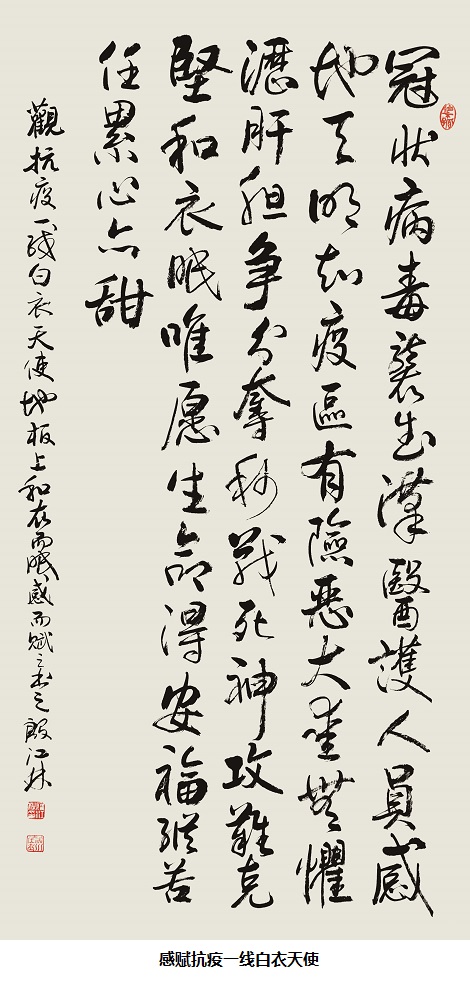 冠状病毒襲武漢醫護人員感
地天明知疫區有險惡大愛無懼
瀝肝胆争分奪秒戰死神攻難克
堅和衣眠唯愿生命得安福縱苦
任累心亦甜
觀抗疫一线白衣天使地板上和衣而眠感而賦之書之殷江林
感赋抗疫一线白衣天使